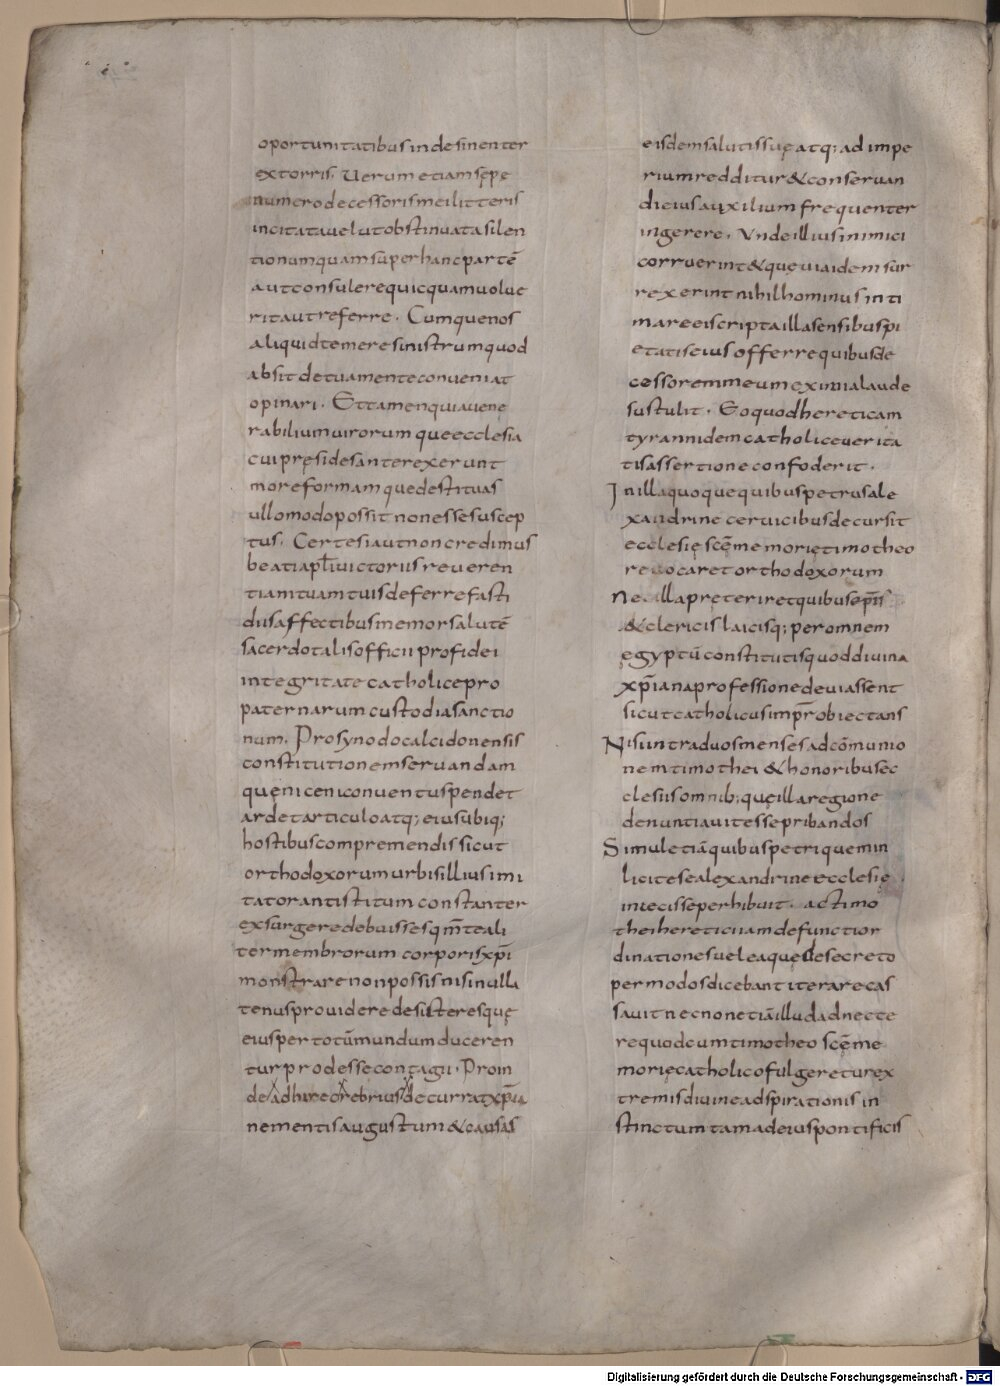 oportunitatibus indesinenter
extorris. Uerum etiam sępe
numero decessoris mei litteris
incitata uelut obstinuata silen
tio numquam super hanc partē
aut consulere quicquam uolue
rit aut referre. Cum que nos
aliquid temere sinistrum quod
absit de tua mente conueniat
opinari. Et tamen qui a uene
rabilium uirorum que ecclesia
cui pręsides anterexerunt
more formam que destituas
ullo modo possit non esse suscep
tus. Certe si aut non credimus
beati apłi uictoriis reueren
tiam tuam tuis deferre fasti
diis affectibus memor salutē
sacerdotalis officii pro fidei
integritate catholice pro
paternarum custodia sanctio
num. Pro synodo calcidonensis
constitutionem seruandam
quę niceni conuentus pendet
ardet articulo atq; eius ubiq;
hostibus compremendis sicut
orthodoxorum urbis illius imi
tator antistitum constanter
exsurgere debuisses q̄m̄ te ali
ter membrorum corporis xp̄i
monstrare non possis nisi nulla
tenus prouidere desisteres quę
eius per totūm mundum duceren
tur prodesse contagii. Proin
de adhuc crebrius decurrat xp̄ia
ne mentis augustum & causas
eisdem salutis suę atq; ad impe
rium redditur & conseruan
di eius auxilium frequenter
ingerere. Unde illius inimici
corruerint & que uia idem sur
rexerint nihilhominus inti
mare ei scripta illa sensibus pi
etatis eius offerre quibus de
cessorem meum eximia laude
sustulit. Eo quod hereticam
tyrannidem catholice uerita
tis assertione confoderit.
In illa quoque quibus petrus ale
xandrine ceruicibus decursit
ecclesię scē memorię timotheo
reuocaret orthodoxorum
nec illa pręteriret quibus ep̄is
& clericis laicisq; per omnem
ęgyptū constitutis quod diuina
xp̄iana professione deuiassent
sicut catholicus imp̄r obiectans
Nisi intra duos menses ad cōmunio
nem timothei & honoribus ec
clesiis omnib; quę illa regione
denuntiauit esse pribandos
Simul etiā quibus petri quem in
licite se alexandrine ecclesię
iniecisse perhibuit. ac timo
thei heretici iam defuncti or
dinationes uel ea quę de secreto
per modos dicebant iterare cas
sauit nec non etiā illud adnecte
re quod cum timotheo scē me
morię catholico fulgeretur ex
tremis diuine adspirationis in
stinctum tam ad eius pontificis
Digitalisierung gefördert durch die Deutsche Forschungsgemeinschaft - DFG